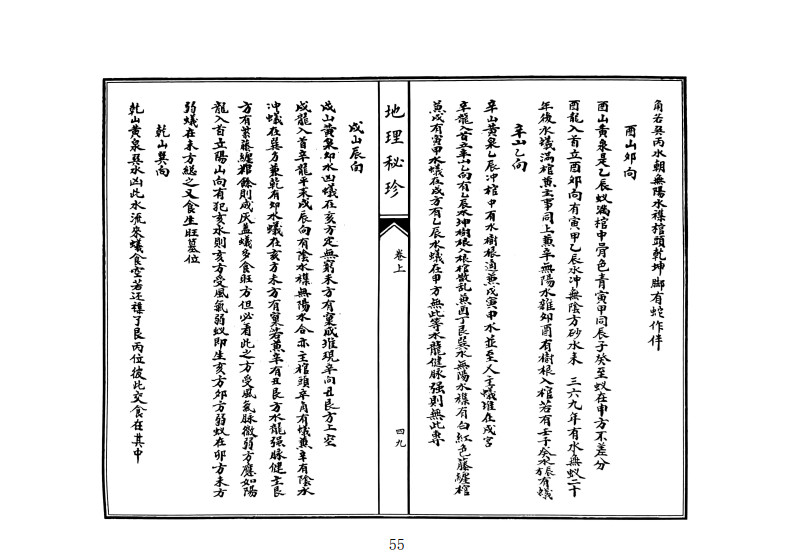 角若巽丙水朝無陽水襍棺頭乾坤脚有蛇作伴
酉山卯向
酉山黃泉是乙辰蚁滿棺中骨色青寅甲同辰子癸至蚁在申方不差分
酉龍入首立酉卯向有寅甲乙辰水冲無陰方砂水未 三六九年有水無蚁二十
年後水蟻滿棺蔥主事同上蔥辛無陽水雜卯酉有樹根入棺若有壬子癸水振有蟻
辛山乙向
辛山黃泉乙辰冲棺中有水樹根通蔥戍寅甲水並至人主蟻堆在戍宮
辛龍入首立辛山乙向有乙辰水坤樹根入棺散乱蔥酉丁艮巽水無陽水襍有白紅色藤纏棺
蔥戍有寅甲水蟻在戍方有乙辰水蟻在甲方無此等水龍健脉强則無此專
地理秘珍
卷上
四九
戍山辰向
戍山黃泉卯水凶蟻在亥方定無窮未方有窠成堆現辛向丑艮方上空
戍龍入首辛龍平未戍辰向有陰水襍無陽水合亦主棺頭辛角有蟻蔥辛有陰水
冲蟻在巽方蔥乾有卯水蟻在亥方未方有窠若蔥辛有丑艮方水龍强脉健主艮
方有紫藤纏棺餘則成灰盖蟻多食旺方但必看此之方受風氣脉微弱方應如陽
龍入首立陽山向有犯亥水則亥方受風氣弱蚁即生亥方卯方弱蚁在卯方未方
弱蟻在未方総之又食生旺墓位
乾山巽向
乾山黃泉巽水凶此水流來蟻食空若还襍了艮丙位彼此交食在其中
55